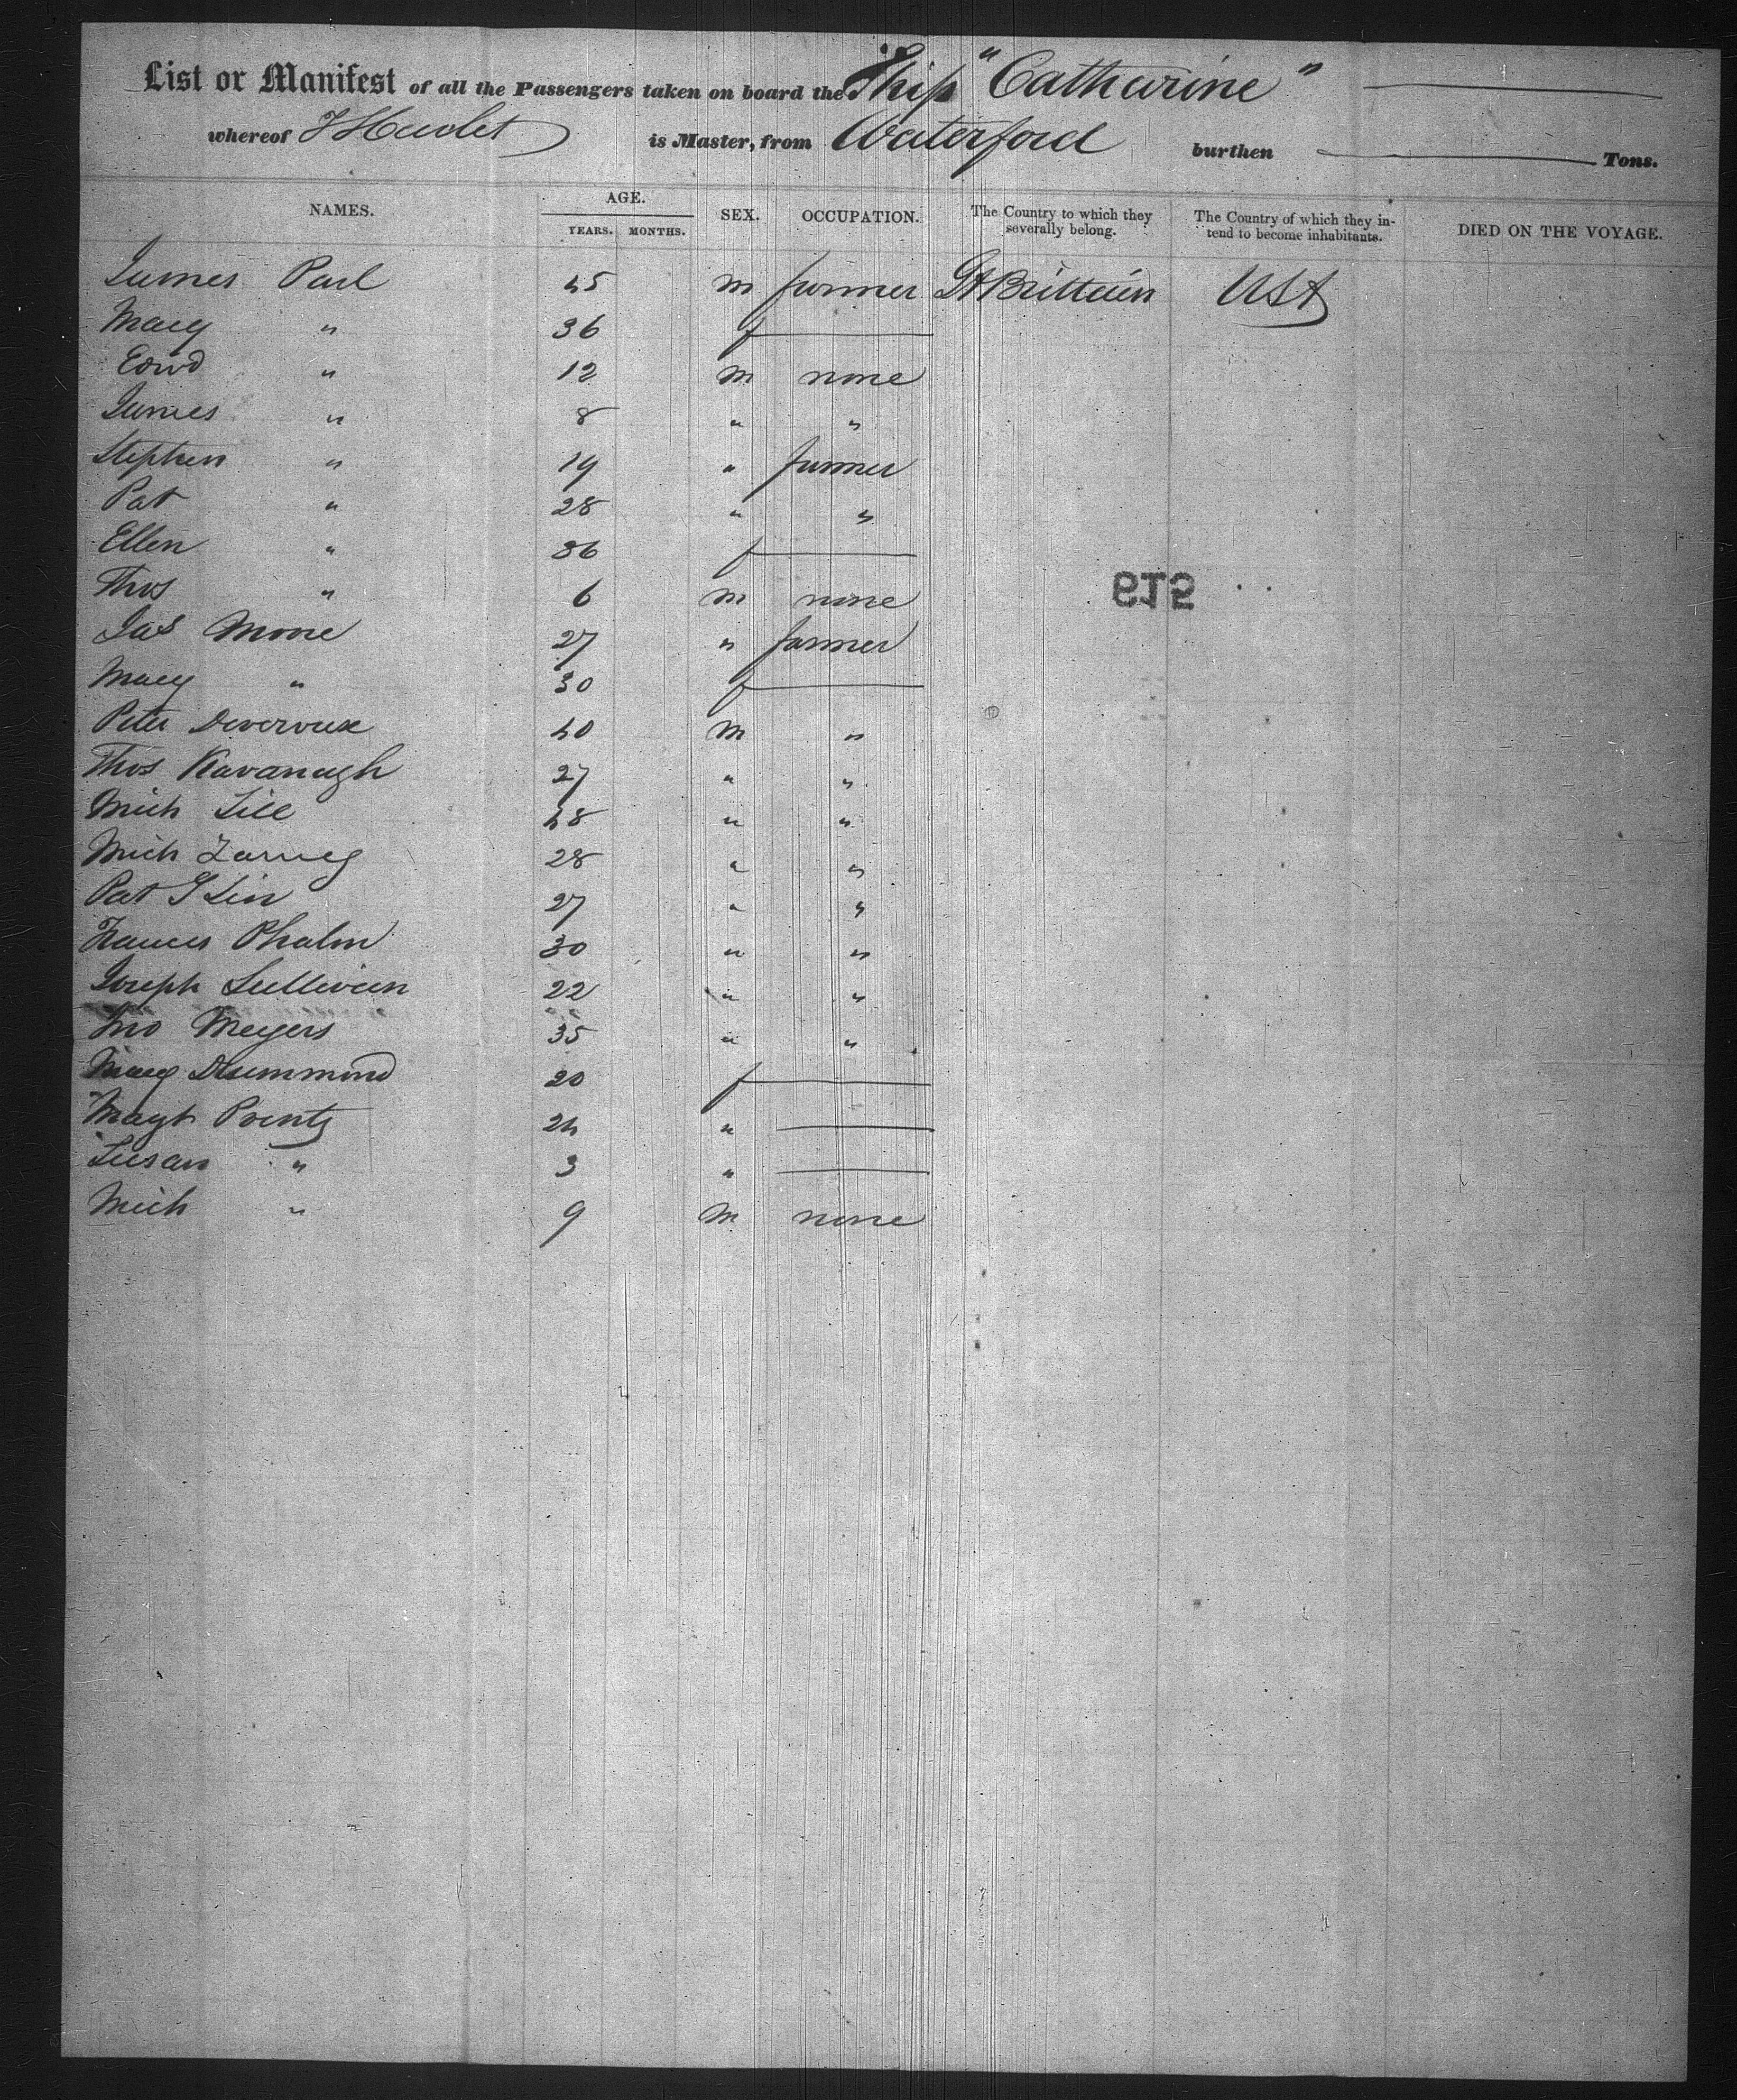 List or Manifest of all the Passengers taken on board the Ship "Catharine"
whereof is Master, from Waterford burthen Tons.
NAMES. AGE. YEARS. MONTHS. SEX. OCCUPATION. The Country to which they severally belong. The Country of which they intend to become inhabitants. DIED ON THE VOYAGE.
James Paul 45 m farmer Gt Brittain USA
Mary " 36 f
Edwd " 12 m none
James " 8 " "
Stephen " 19 " farmer
Pat " 28 " "
Ellen " 36 f
Thos " 6 m none
Jas Moore 27 " farmer
Mary " 30 f
Peter Deveroux 40 m "
Thos Kavanagh 27 " "
Mich 48 " "
Mich 28 " "
Pat 27 " "
Frances Phalon 30 " "
Joseph Sullivan 22 " "
Jno Meyers 35 " "
Mary Drummond 20 f
Magt 24 "
Susan " 3 "
Mich " 9 m none